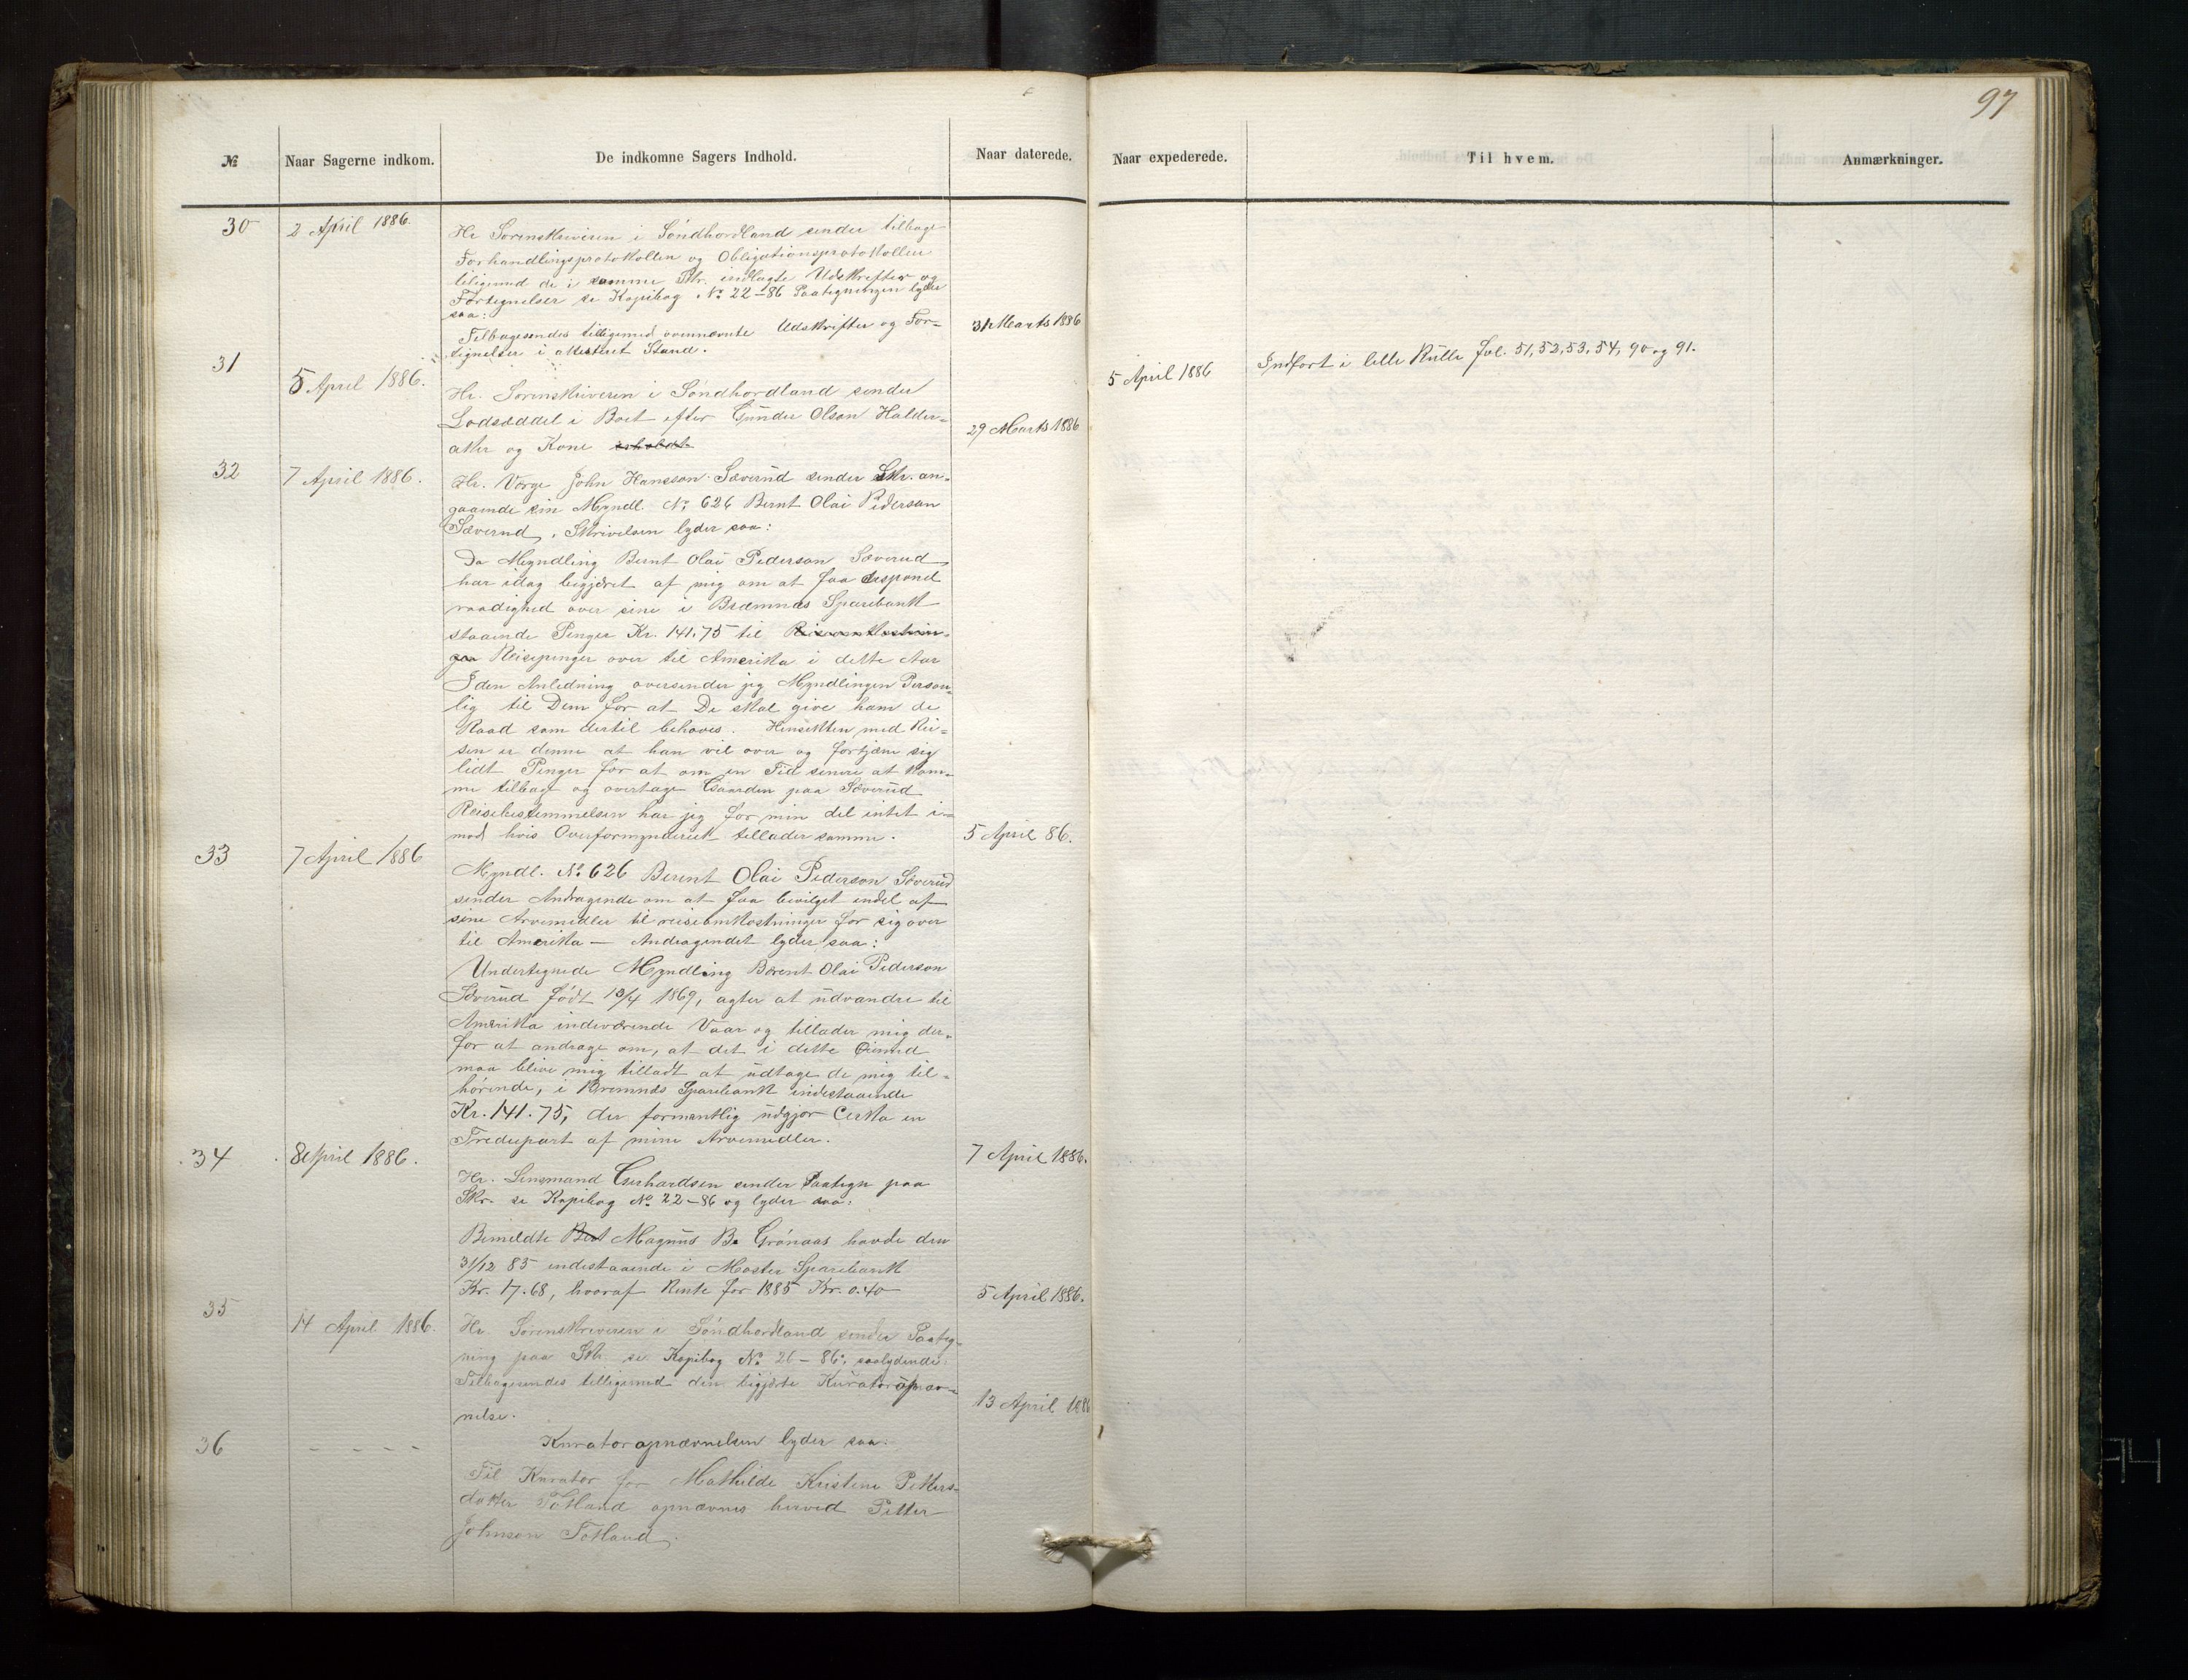 97
№ Naar Sagerne indkom. De indkomne Sagers Indhold. Naar daterede. Naar expederede. Til hvem. Anmærkninger.
30 2 April 1886.
Hr Sorenskriveren i Søndhordland sender tilbage
Forhandlingsprotokollen og Obligationsprotokollen
tiligemed de i samme Skr. indlagte Udskrifter og
Fortegnelser se Kopibog No 22-86 Paategningen lyder
saa:
Tilbagesendes tilligemed ovennævnte Udskrifter og For=
tegnelser i attesteret Stand.
31 Marts 1886
5 April 1886
Indført i lille Rulle fol. 51, 52, 53, 54, 90 og 91.
31 5 April 1886.
Hr. Sorenskriveren i Søndhordland sender
Lodseddel i Boet efter Gunder Olson Halder=
aker og Kone
29 Marts 1886
32 7 April 1886.
Hr. Værge John Hansson Sæverud sender Skr. an=
gaaende sin Myndl. No 626 Bernt Olai Pederson
Sæverud, Skrivelsen lyder saa:
Da Myndling Bernt Olai Pederson Sæverud
har idag begjæret af mig om at faa
raadighed over sine i Bræmnæs Sparebank
staaende Penger Kr. 141.75 til Reiseomkostnin=
ger Reisepenger over til Amerika i dette Aar
I den Anledning oversender jeg Myndlingen Person=
lig til Dem for at De skal give ham de
Raad som dertil behøves. Hensikten med Rei=
sen er denne at han vil over og fortjæne sig
lidt Penger for at om en Tid senere at kom=
me tilbage og overtage Gaarden paa Sæverud
Reisebestemmelsen har jeg for min del intet i=
mod hvis Overformynderiet tillader samme.
5 April 86.
33 7 April 1886
Myndl. No 626 Berent Olai Pederson Sæverud
sender Andragende om at faa bevilget endel af
sine Arvemidler til reiseomkostninger for sig over
til Amerika — Andragendet lyder saa:
Undertegnede Myndling Berent Olai Pederson
Sæverud født 13/4 1869, agter at udvandre til
Amerika indeværende Vaar og tillader mig der=
for at andrage om, at det i dette Øiemed
maa blive mig tilladt at udtage de mig til=
hørende, i Bremnæs Sparebank indestaaende
Kr. 141.75, der formentlig udgjør Cirka en
Trediepart af mine Arvemidler.
7 April 1886.
34 8 April 1886.
Hr. Lensmand Gerhardsen sender Paategn paa
Skr. se Kopibog No 22-86 og lyder saa:
Bemeldte Magnus B. Grønaas havde den
31/12 85 indestaaende i Moster Sparebank
Kr. 17.68, hvoraf Rente for 1885 Kr. 0.40
5 April 1886.
35 14 April 1886.
Hr. Sorenskriveren i Søndhordland sender Paateg=
ning paa Skr. se Kopibog No 26-86, saalydende:
Tilbagesendes tilligemed den begjærte Kuratoropnæv=
nelse.
13 April 1886
36 - - - -
Kuratoropnævnelsen lyder saa:
Til Kurator for Mathilde Kristine Petters=
datter Totland opnævnes herved Petter
Johnson Totland.